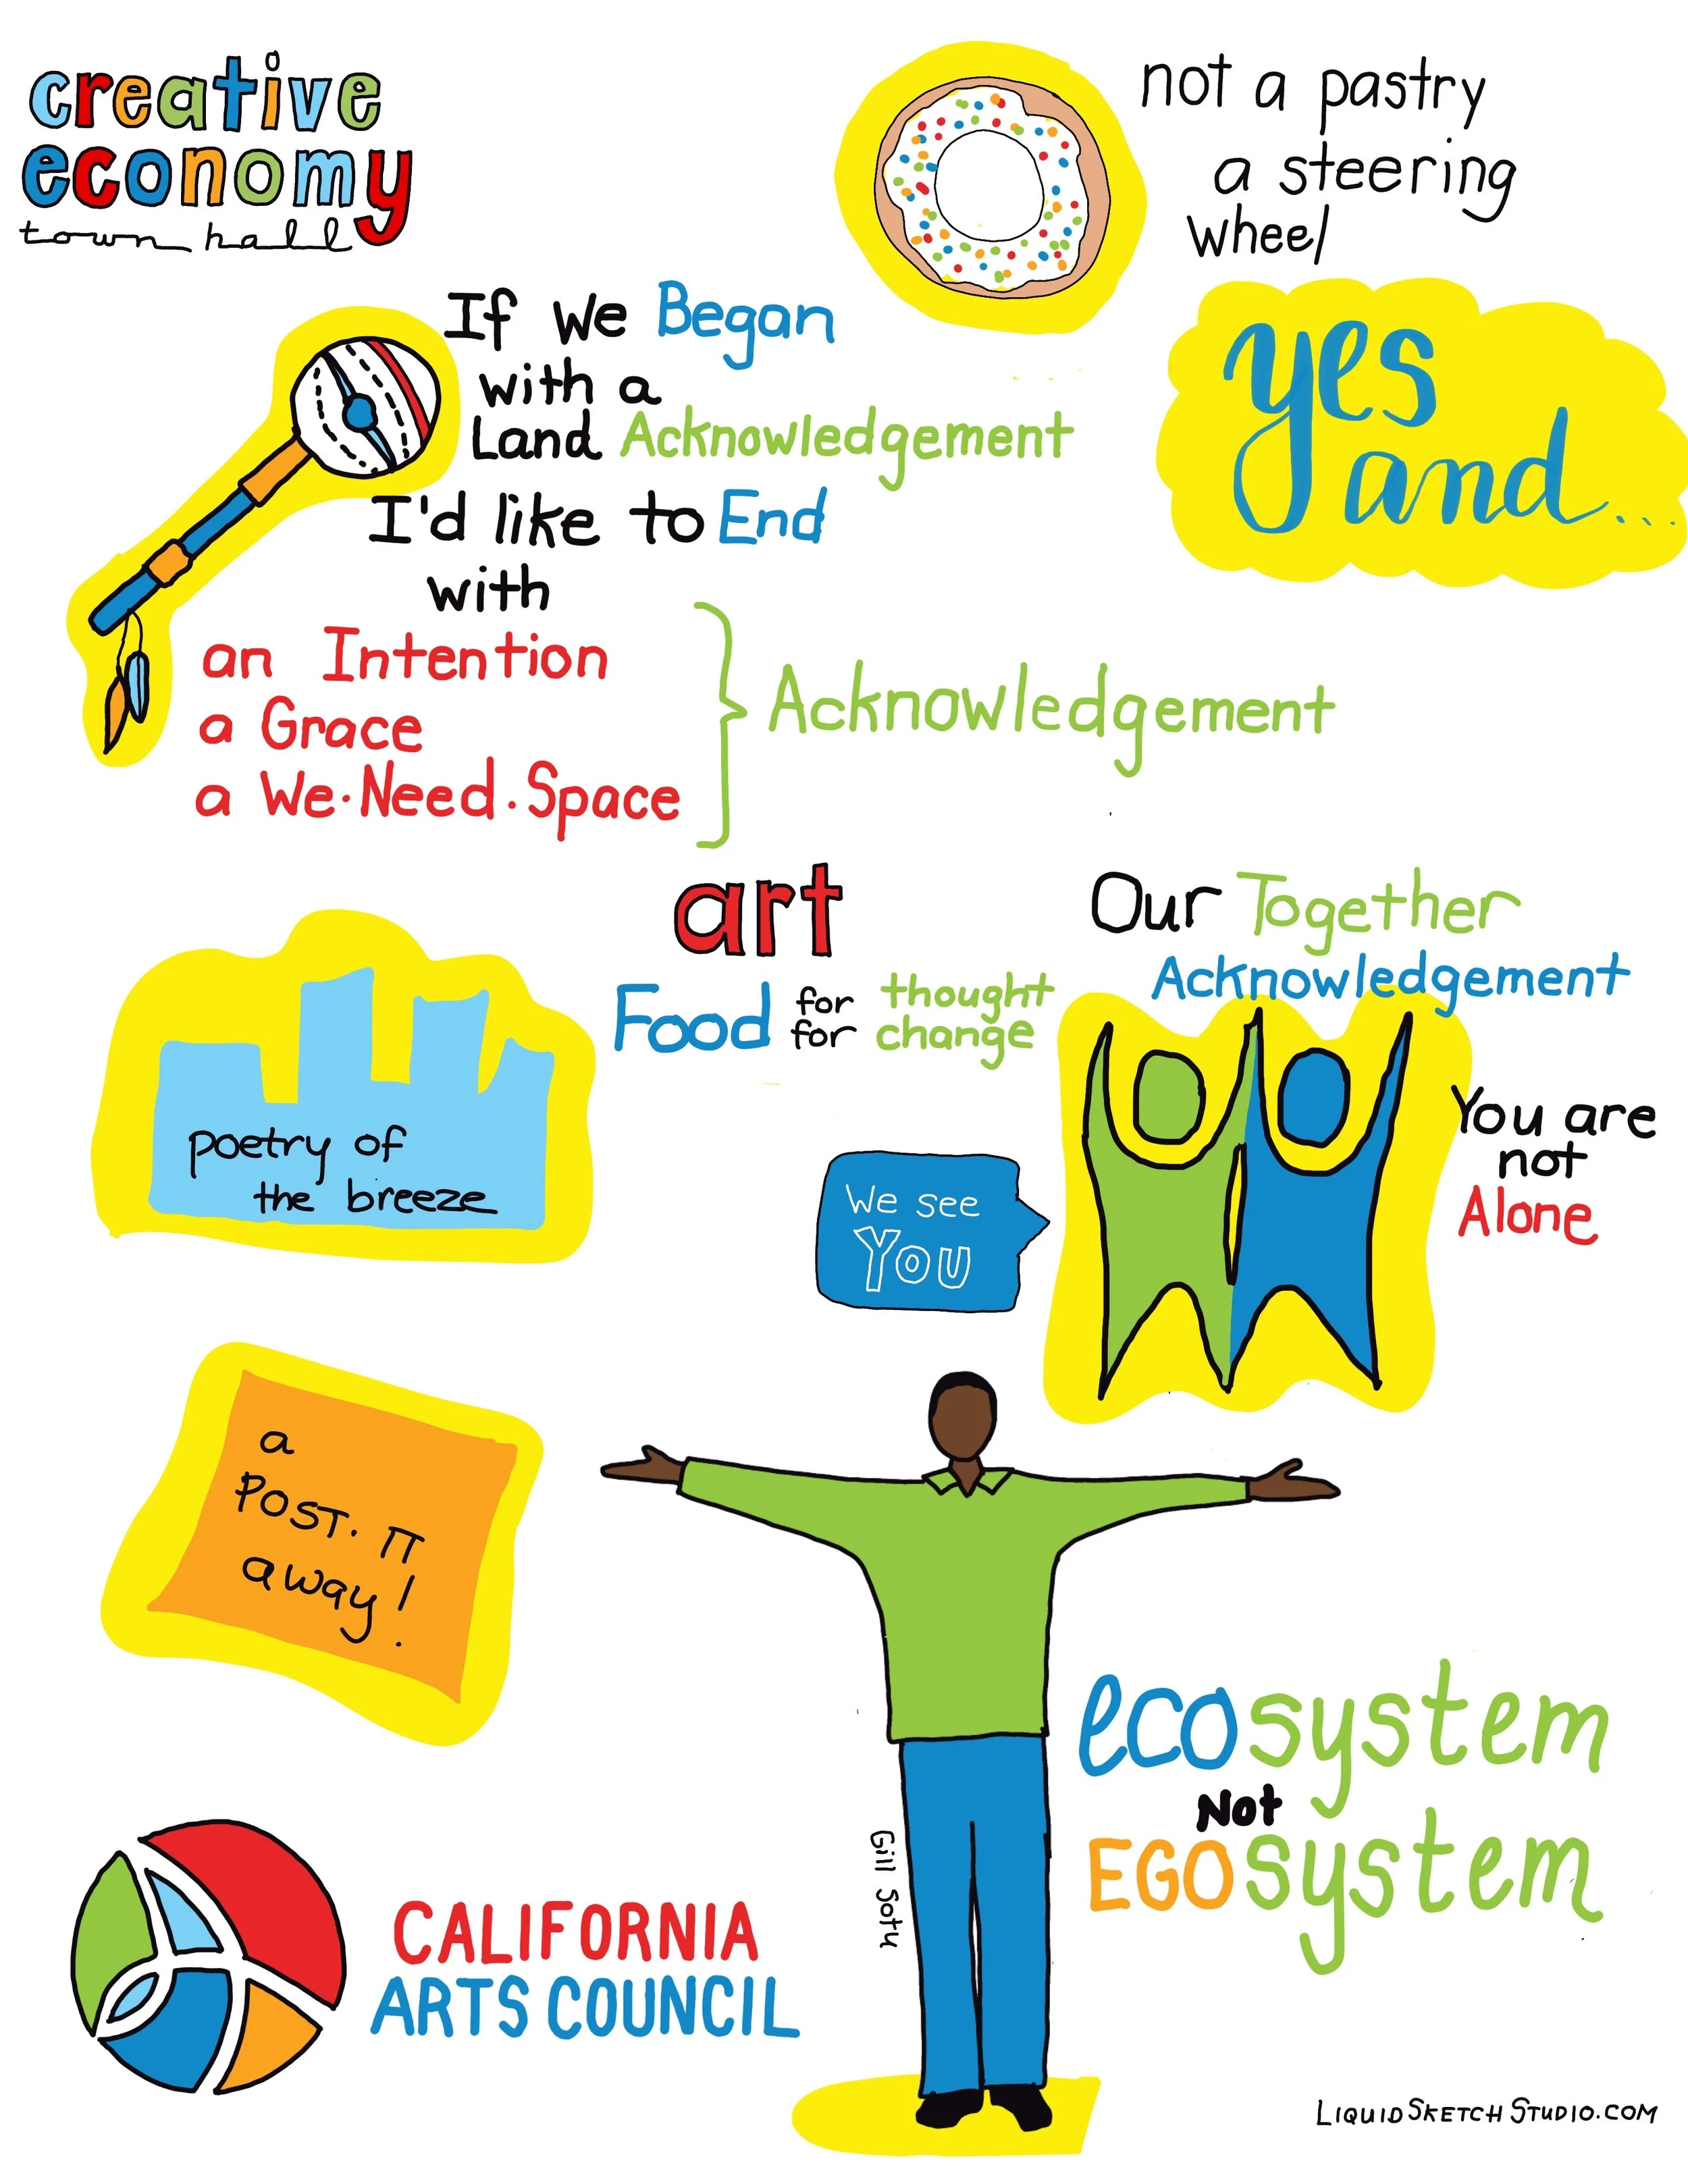 creative
economy
town hall
not a pastry
a steering
wheel
If We Began
with a
Land Acknowledgement
I'd like to End
with
an Intention
a Grace
a We·Need·Space
Acknowledgement
yes
and...
art
Food for thought
for change
Our Together
Acknowledgement
poetry of
the breeze
We see
You
You are
not
Alone
a
POST·IT
away!
ecosystem
Not
EGOsystem
Gill Sotu
CALIFORNIA
ARTS COUNCIL
LIQUIDSKETCHSTUDIO.COM